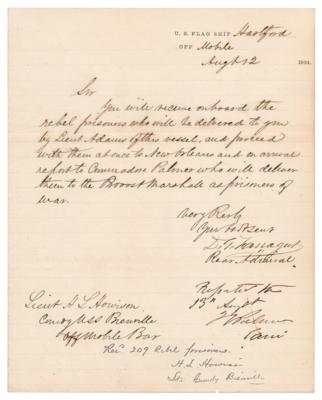 U. S. FLAG SHIP Hartford
OFF Mobile
Augt 12 1864.
Sir
You will receive onboard the
rebel prisoners who will be delivered to you
by Lieut Adams of this vessel, and proceed
with them at once to New Orleans and on arrival
report to Commodore Palmer who will deliver
them to the Provost Marshall as prisoners of
war.
Very Resly
Your obt Servt
D. G. Farragut
Rear Admiral.
Lieut H L Howison
Comdg USS Bienville
off Mobile Bar
Reported to
13th Augt
Palmer
Recd 209 Rebel prisoners.
H. L. Howison
Lt. Comdg Bienville